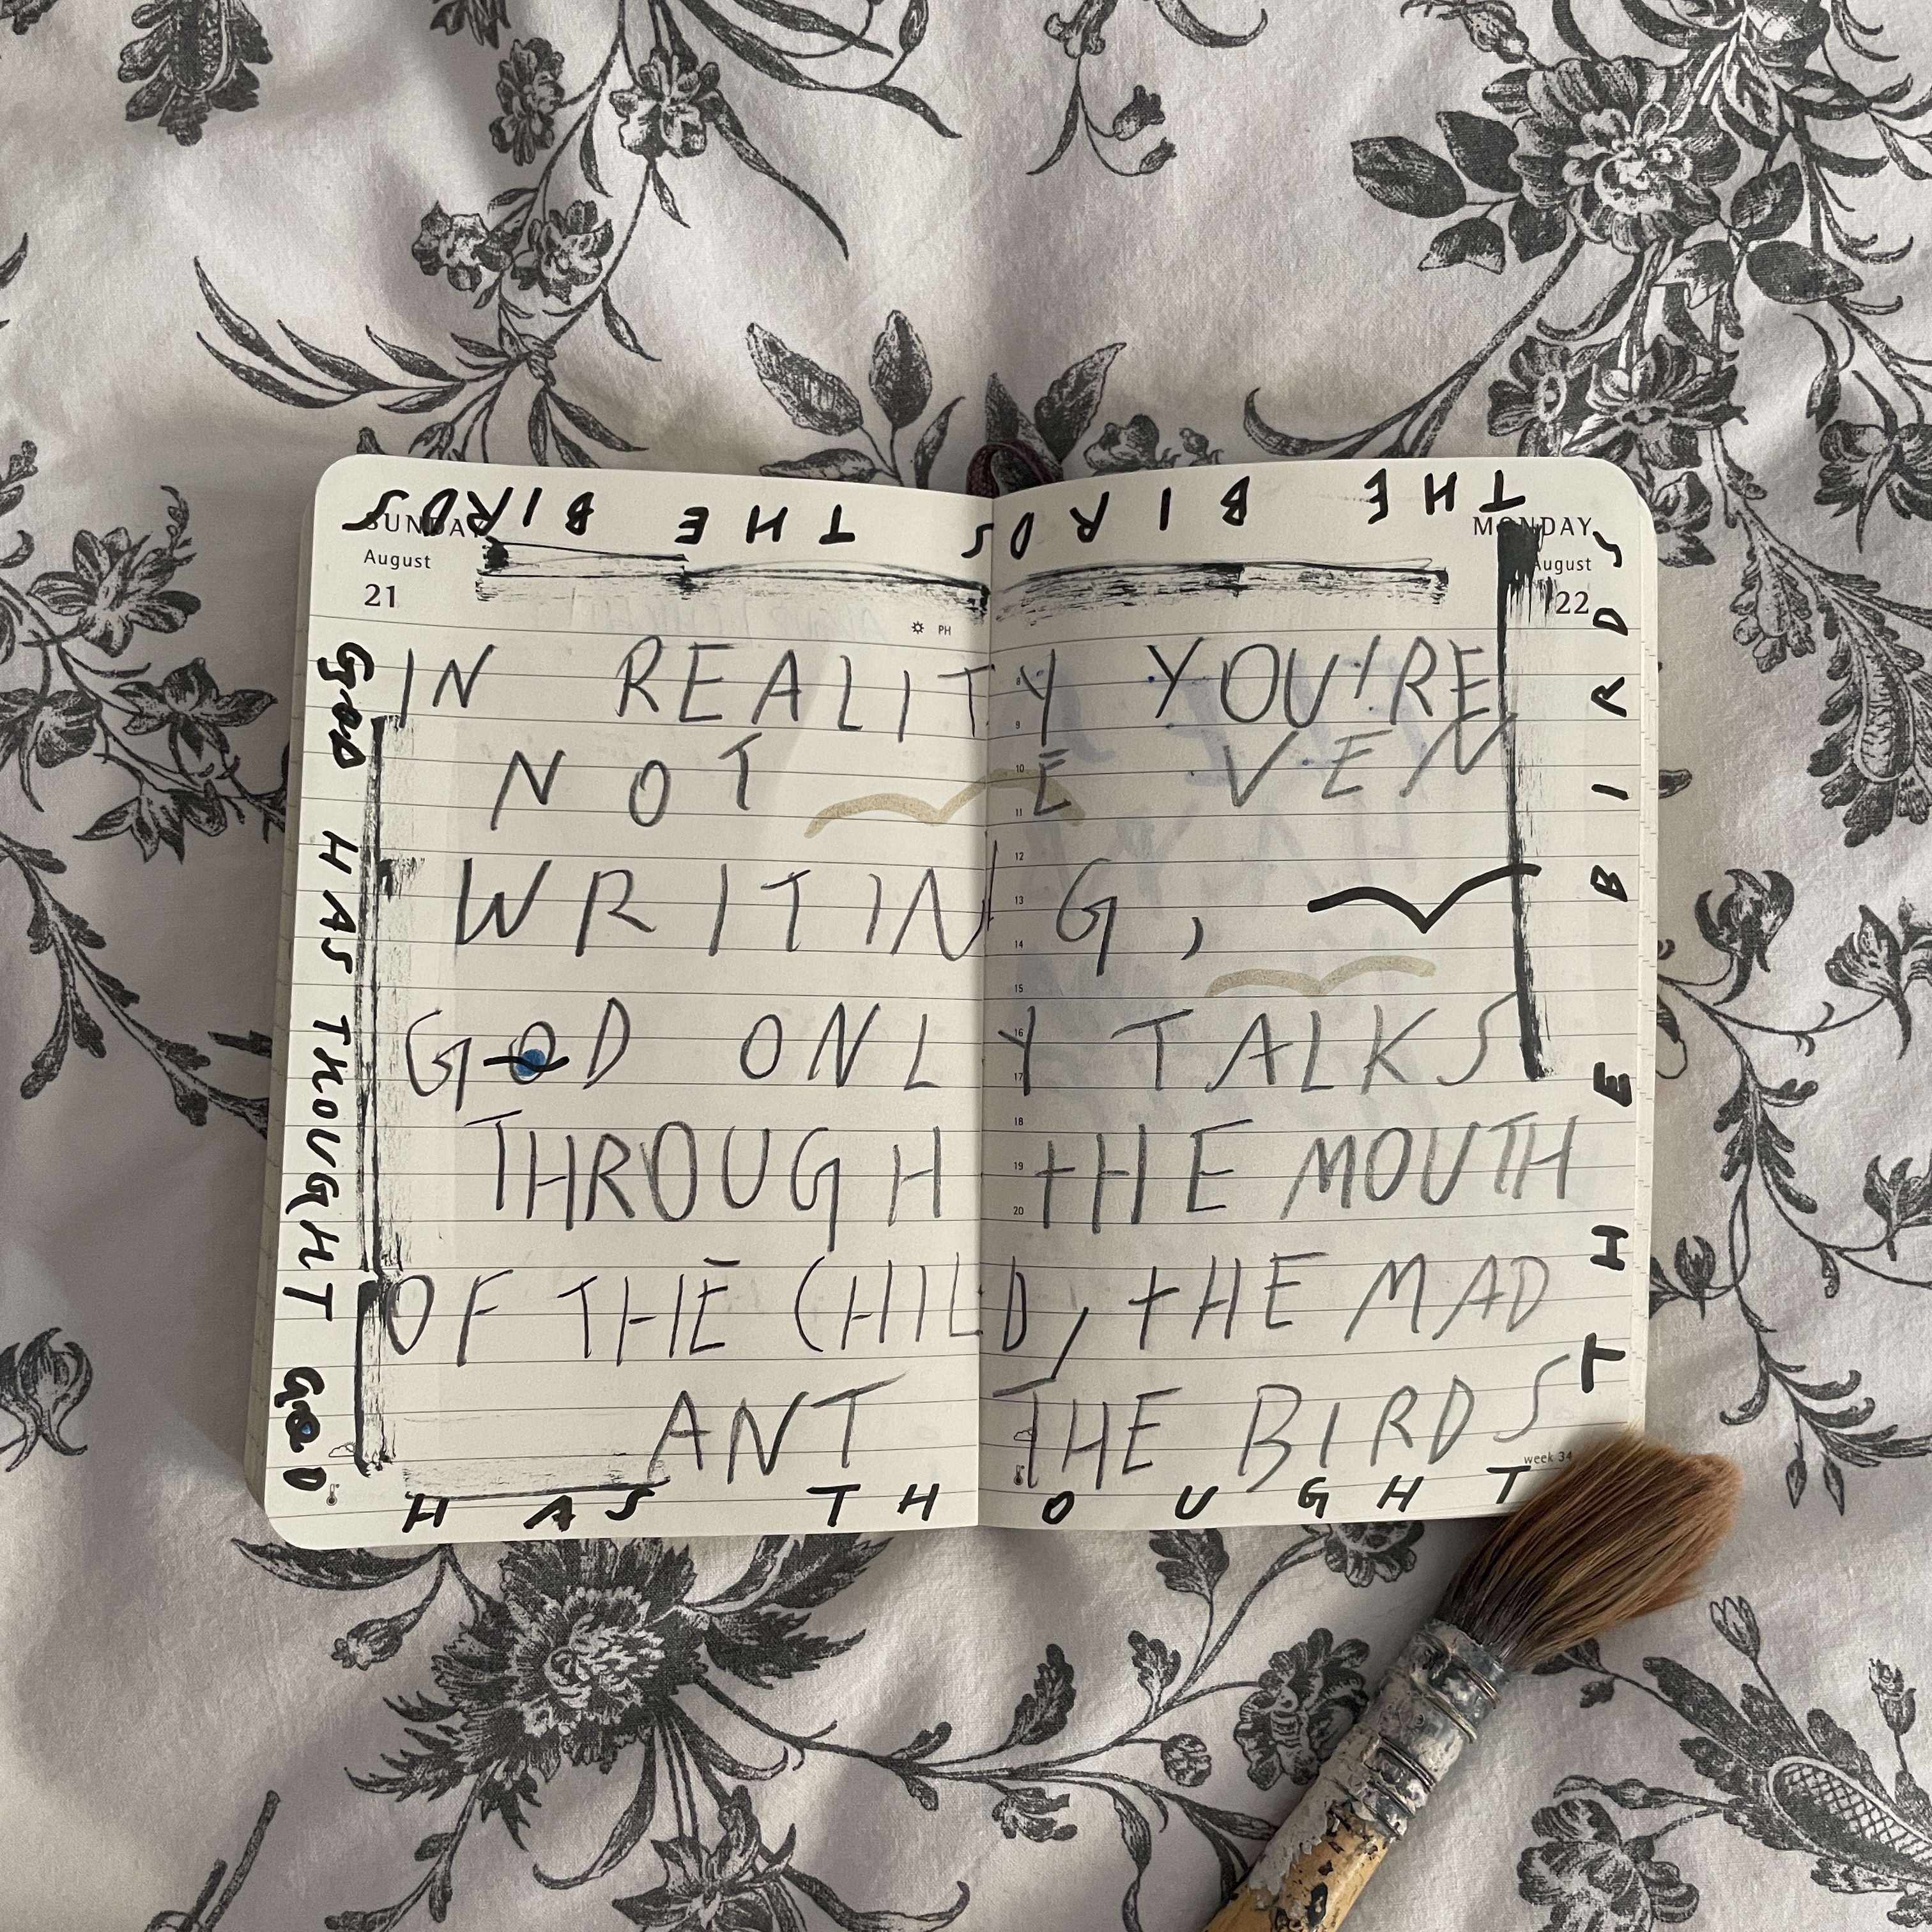 THE BIRDS THE BIRDS
SUNDAY
August
21
PH
MONDAY
August
22
IN REALITY YOU'RE
NOT EVEN
WRITING,
GOD ONLY TALKS
THROUGH THE MOUTH
OF THE CHILD, THE MAD
ANT THE BIRDS
8
9
10
11
12
13
14
15
16
17
18
19
20
week 34
GOD HAS THOUGHT GOD
HAS THOUGHT
THE BIRDS